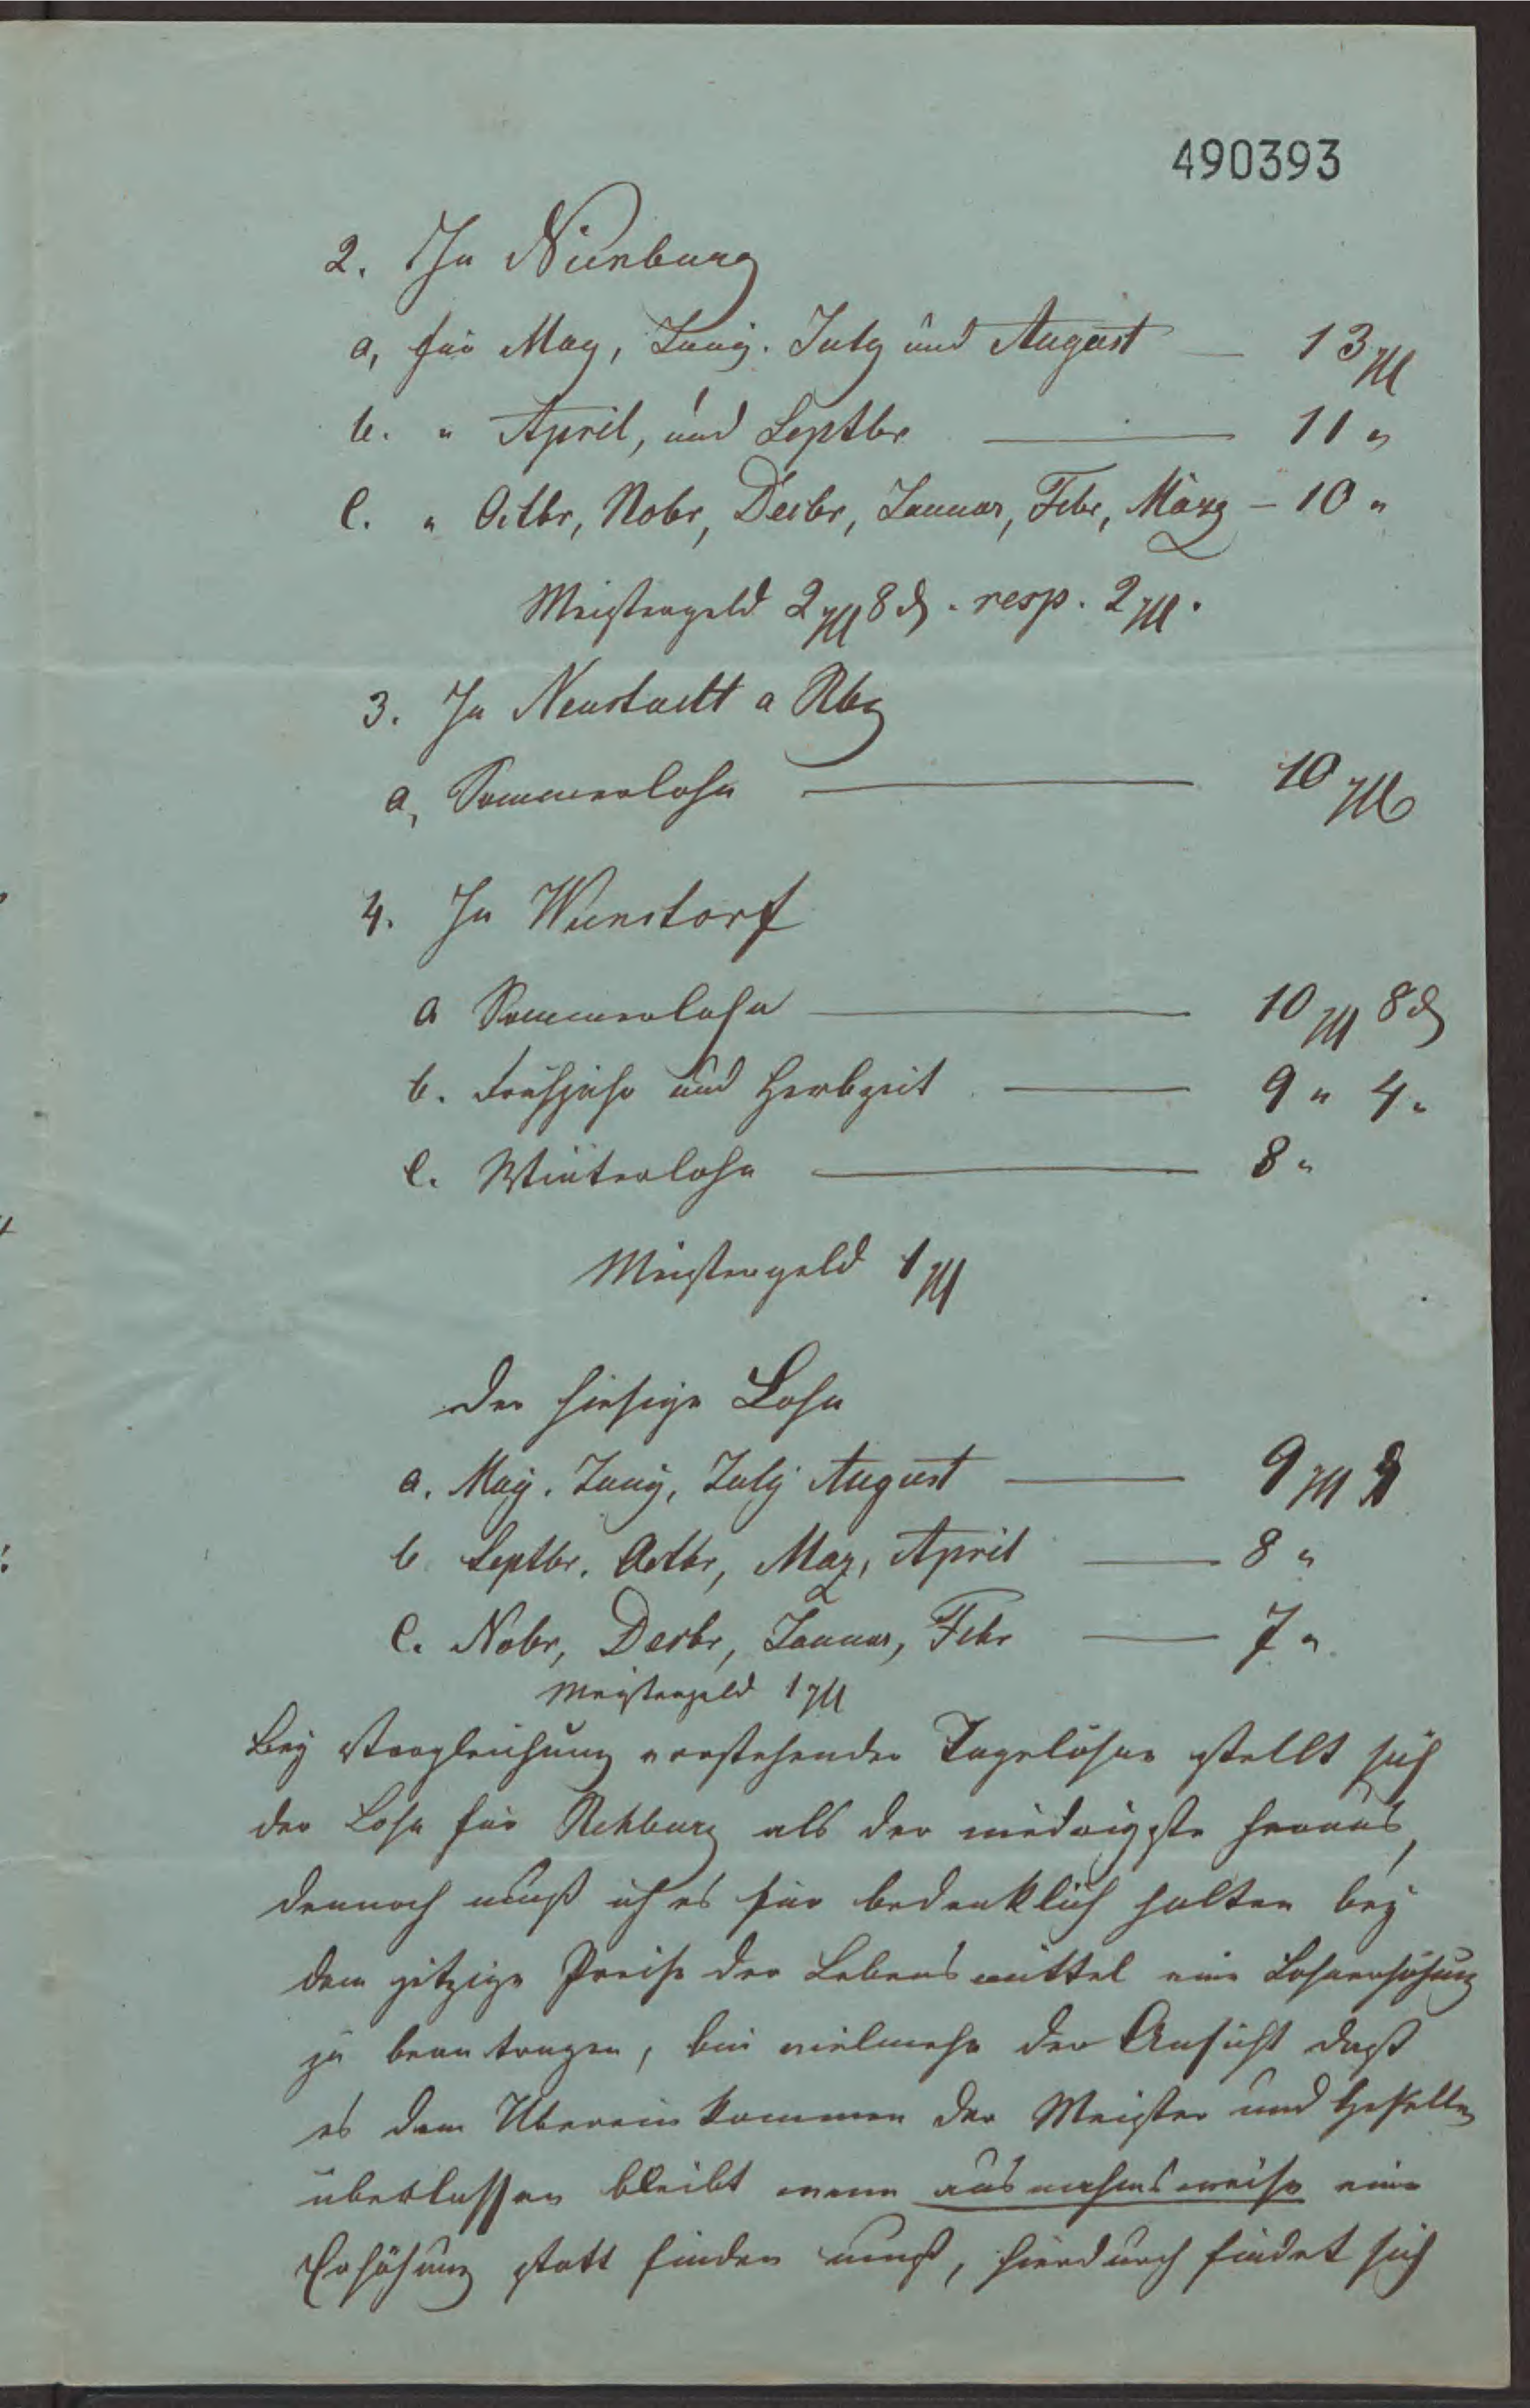 490393
2. In Nienburg
a, für May, Juny. July und August — 13 ggl
b. " April, und Septbr — 11 "
c. " Octbr, Nobr, Decbr, Januar, Febr, März – 10 "
Meistergeld 2 ggl 8 d. resp. 2 ggl.
3. In Neustadt a Rbg
a, Sommerlohn — 10 ggl
4. In Wunstorf
a Sommerlohn — 10 ggl 8 d
b. Frühjahr und Herbzeit — 9 " 4 "
c. Winterlohn — 8 "
Meistergeld 1 ggl
der hiesige Lohn
a. May. Juny, July August — 9 ggl
b Septbr. Octbr, Maz, April — 8 "
c. Nobr, Decbr, Januar, Febr — 7 "
Meistergeld 1 ggl
Bey Vergleichung vorstehender Tagelöhne stellt sich
der Lohn für Rehburg als der niedrigste heraus,
dennoch muß ich es für bedenklich halten bey
dem jetzige Preise der Lebensmittel eine Lohnerhöhung
zu beantragen, bin vielmehr der Ansicht daß
es dem Übereinkommen der Meister und Gesellen
überlassen bleibt wenn ausnahmsweise eine
Erhöhung statt finden muß, hierdurch findet sich